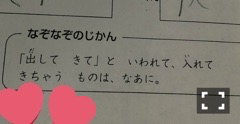 なぞなぞのじかん
「出して きて」と いわれて、入れて
きちゃう ものは、なあに。